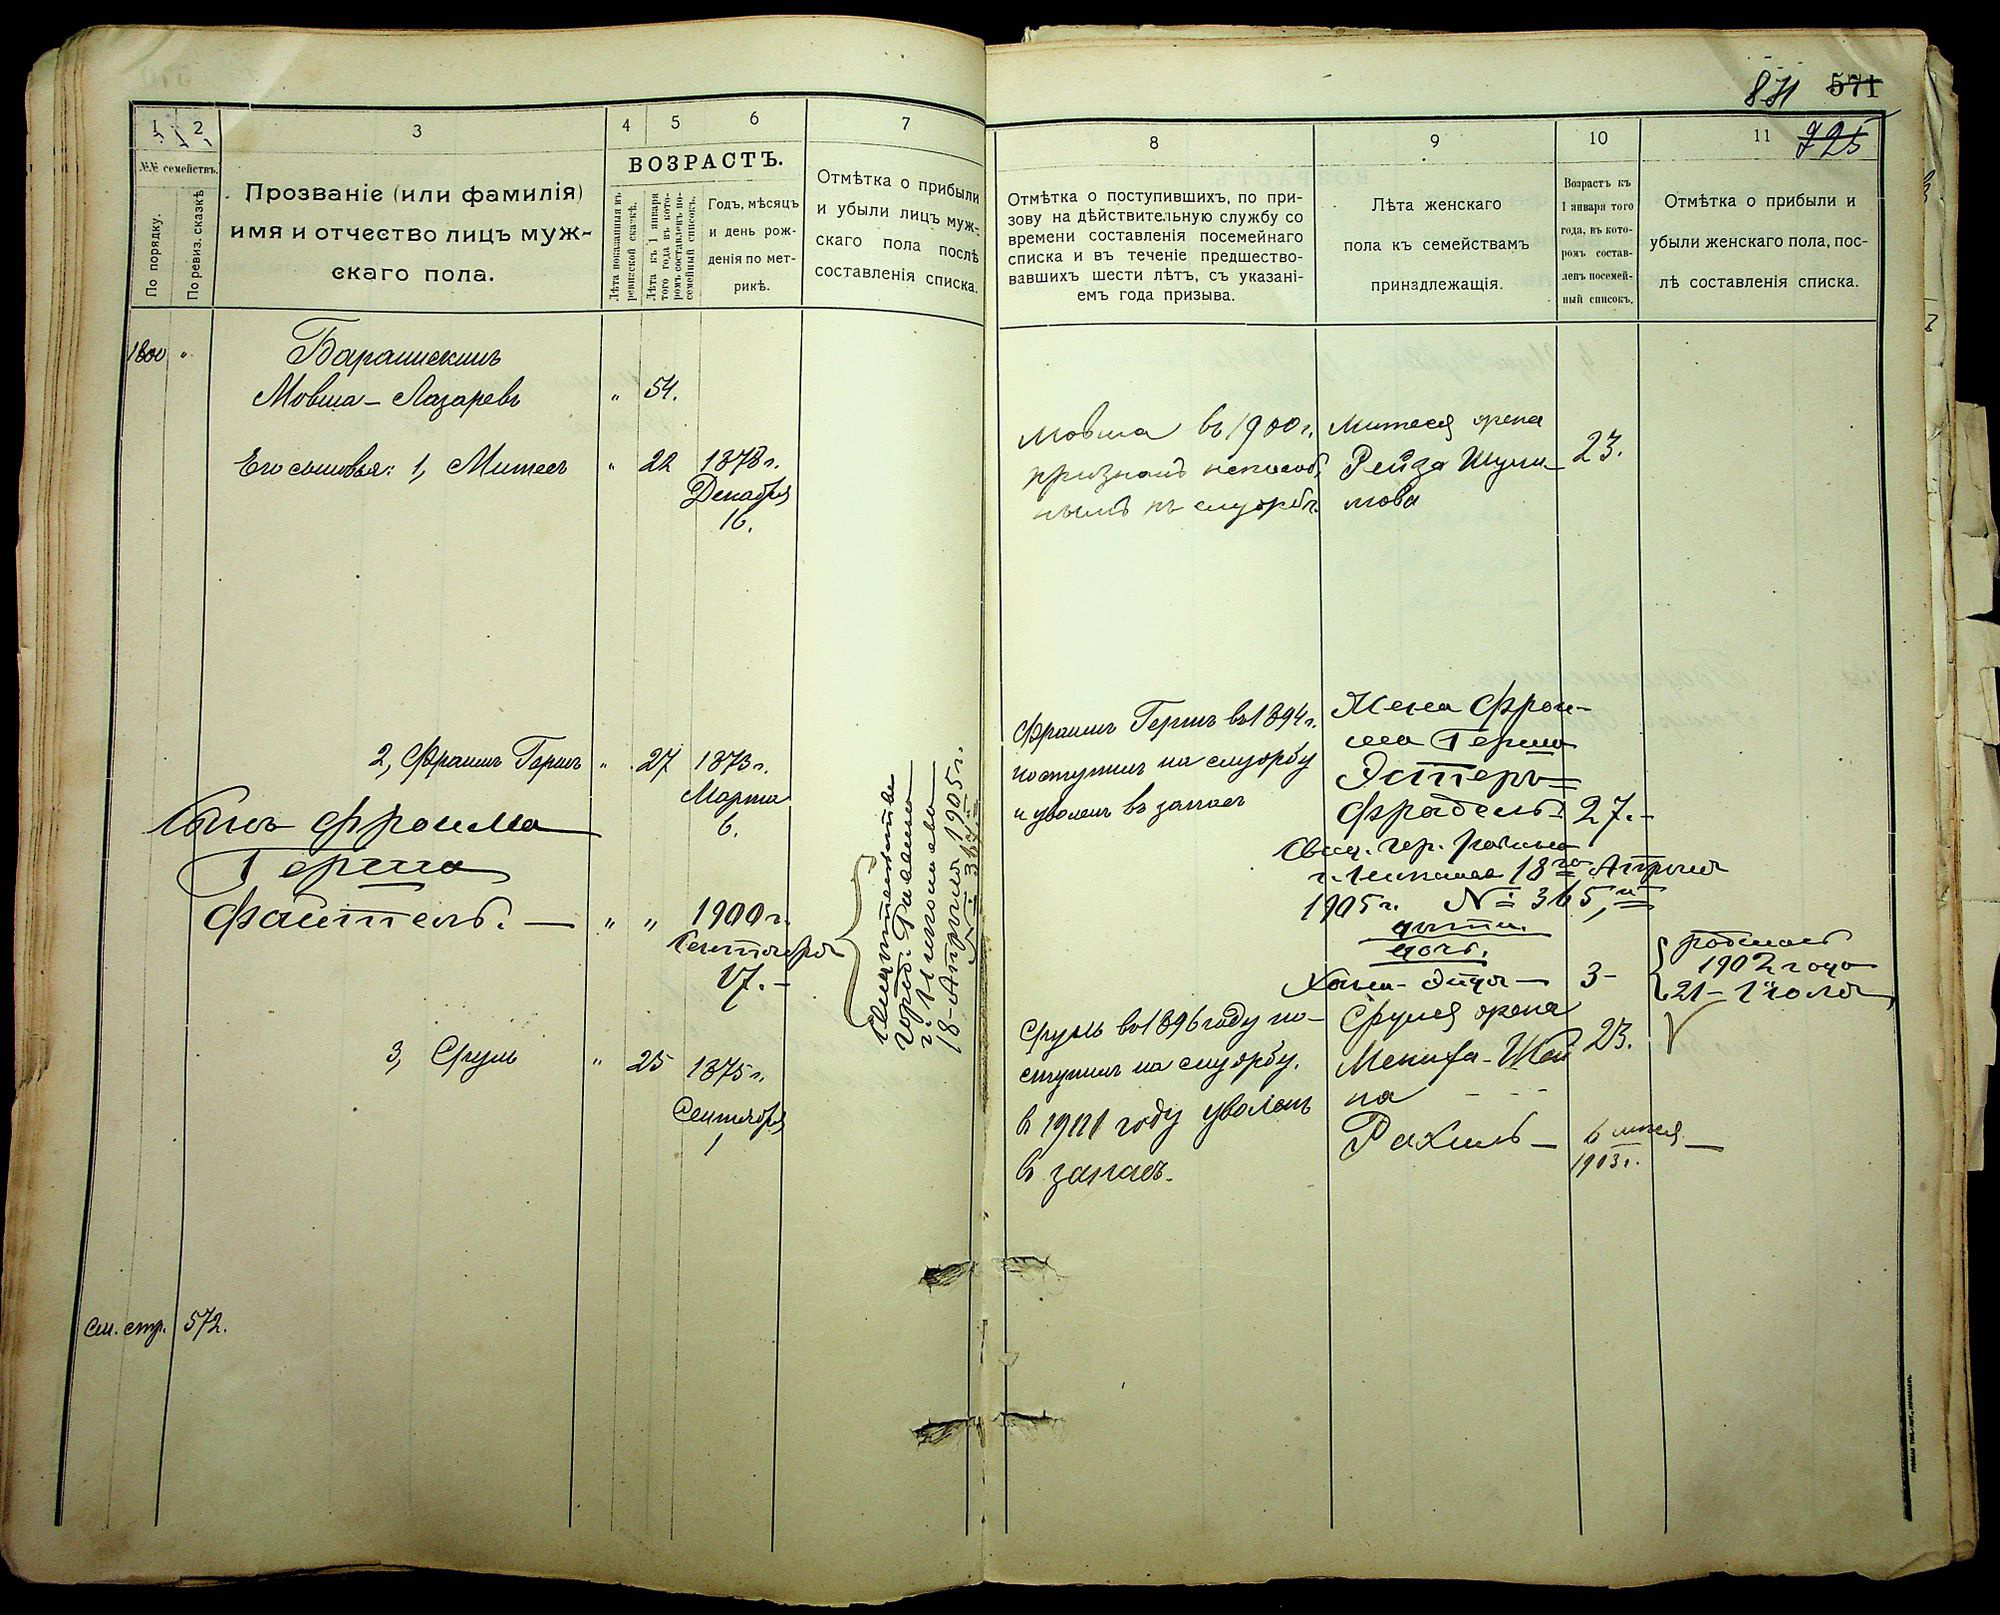 871 571
725
1 2 3 4 5 6 7
№№ семействъ.
По порядку.
По ревиз. сказкѣ
Прозваніе (или фамилія)
имя и отчество лицъ муж-
скаго пола.
ВОЗРАСТЪ.
Лѣта показанныя въ
ревизской сказкѣ.
Лѣта къ 1 января
того года въ кото-
ромъ составленъ по-
семейный списокъ.
Годъ, мѣсяцъ
и день рож-
денія по мет-
рикѣ.
Отмѣтка о прибыли
и убыли лицъ муж-
скаго пола послѣ
составленія списка.
1800 "
Мовша – Лазаревъ " 54.
Его сыновья: 1, " 22 1878 г.
Декабря
16.
2, Фраимъ Гершъ " 27 1873 г.
Марта
6.
Сынъ Фроима
Герша
Файтель. — " " 1900 г.
Сентября
17. –
18 – Апрѣля 1905 г.
3, Сруль " 25 1875 г.
Сентября
1
См. стр. 572.
8 9 10 11
Отмѣтка о поступившихъ, по при-
зову на дѣйствительную службу со
времени составленія посемейнаго
списка и въ теченіе предшество-
вавшихъ шести лѣтъ, съ указані-
емъ года призыва.
Лѣта женскаго
пола къ семействамъ
принадлежащія.
Возрастъ къ
1 января того
года, въ кото-
ромъ состав-
ленъ посемей-
ный списокъ.
Отмѣтка о прибыли и
убыли женскаго пола, пос-
лѣ составленія списка.
Мовша въ 1900 г.
признанъ неспособ
нымъ къ службѣ.
жена
Рейза Шули- 23.
мова
Фраимъ Гершъ въ 1894 г.
поступилъ на службу
и уволенъ въ запасъ
Жена Фрои-
ма Герша
Эстеръ=
Фрадель 27. –
18го Апрѣля
1905 г. № 365,
дѣти
дочь.
3 –
родилась
1902 года
21 – Іюля
Сруль въ 1896 году по-
ступилъ на службу.
въ 1901 году уволенъ
въ запасъ.
Сруля жена
Шей 23.
на
Рахиль – 6 —
1903 г.